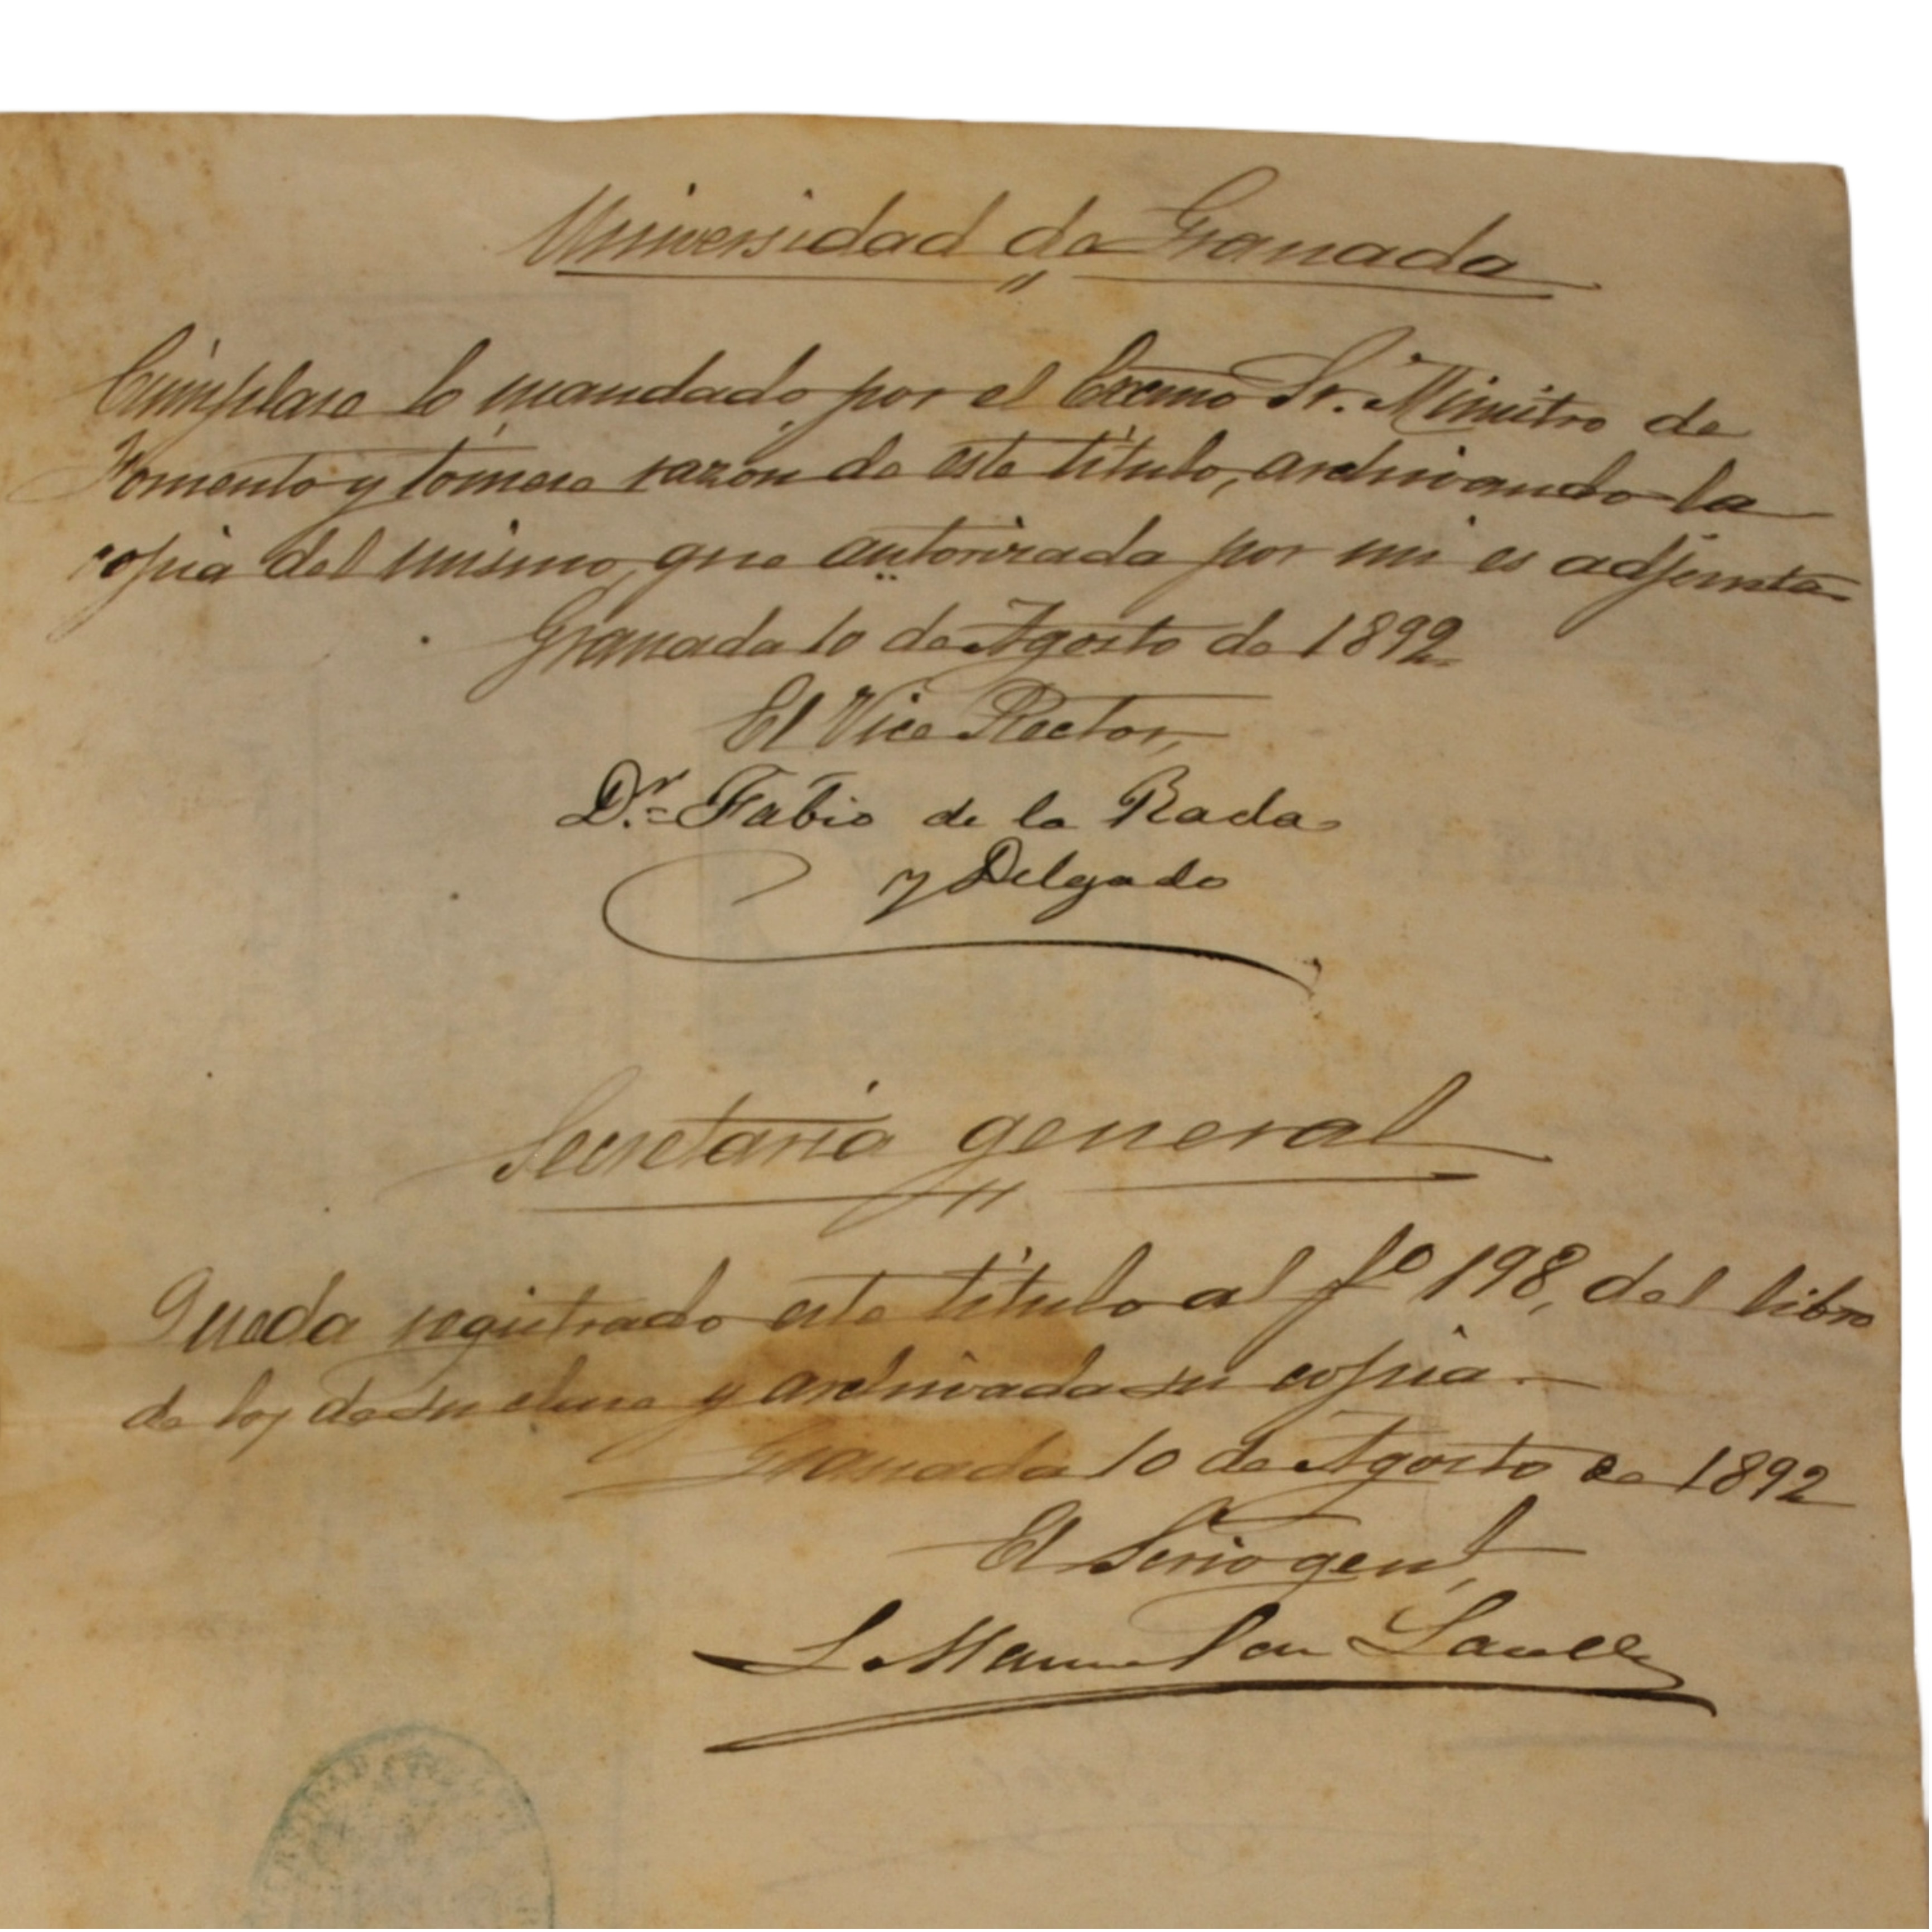 Universidad de Granada
Cúmplase lo mandado por el Excmo Sr. Ministro de
Fomento y tómese razón de este título, archivando la
copia del mismo, que autorizada por mi es adjunta.
Granada 10 de Agosto de 1892.
El Vice Rector,
Dr. Fabio de la Rada
y Delgado
Secretaría general
Queda registrado este título al fo 198, del libro
de los de su clase y archivada su copia.
Granada 10 de Agosto de 1892
El Serio genl,
L. Manuel